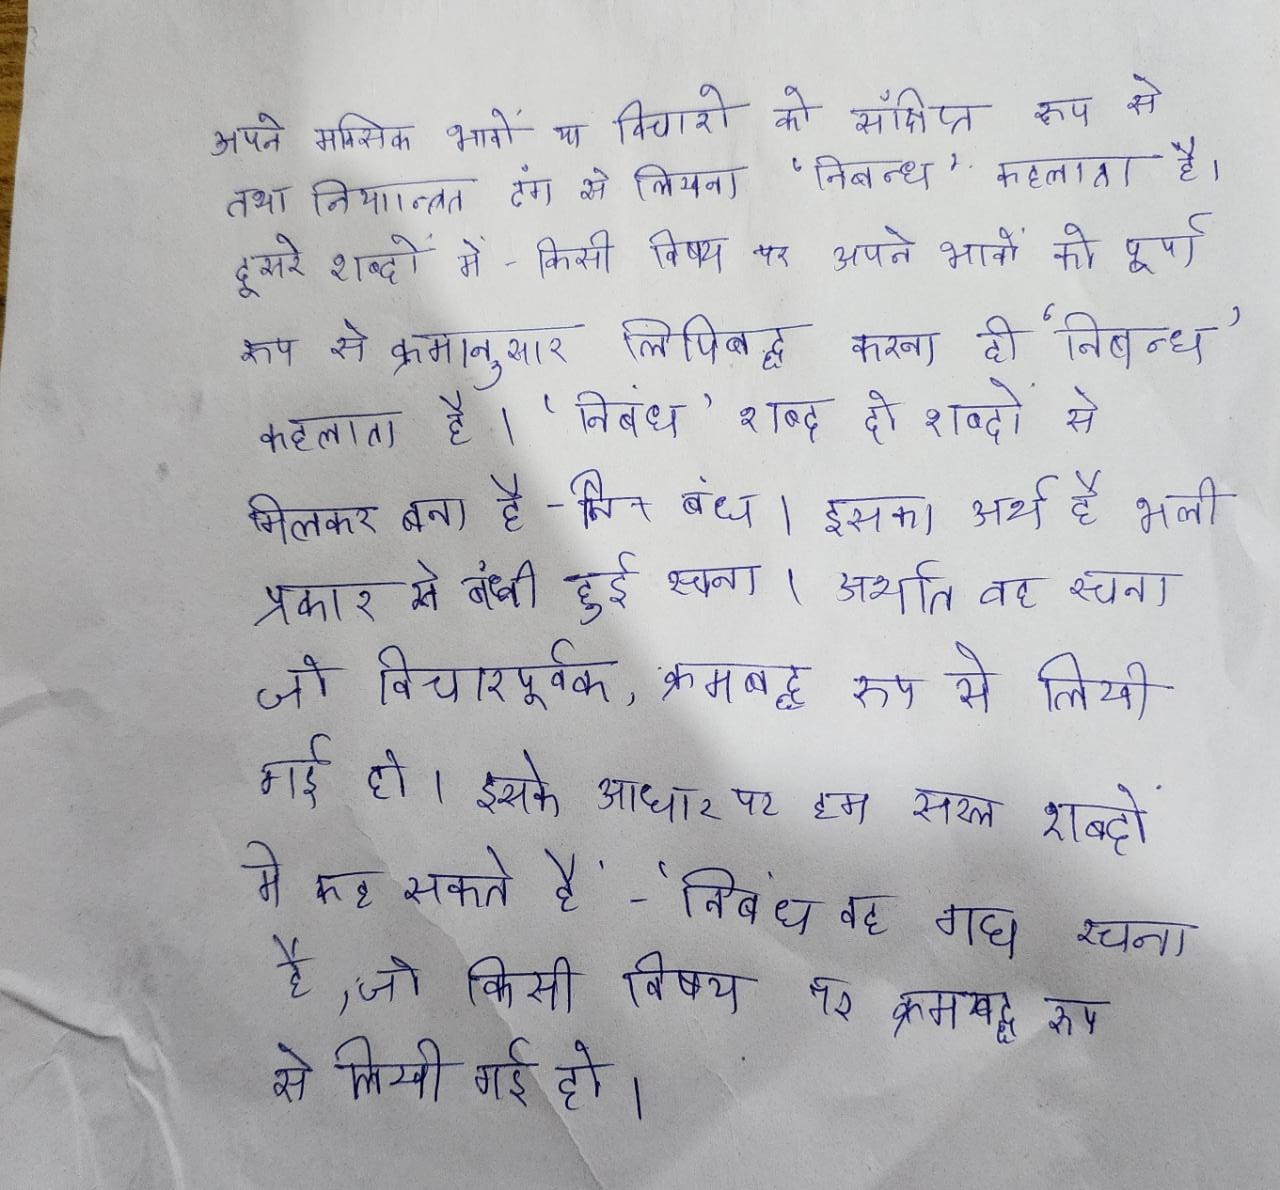 अपने मानसिक भावों या विचारो को संक्षिप्त रूप से
तथा नियान्त्रत ढंग से लिखना 'निबन्ध' कहलाता है।
दूसरे शब्दों में - किसी विषय पर अपने भावों को पूर्ण
रूप से क्रमानुसार लिपिबद्ध करना ही 'निबन्ध'
कहलाता है। 'निबंध' शब्द दो शब्दों से
मिलकर बना है - नि + बंध। इसका अर्थ है भली
प्रकार से बंधी हुई रचना। अर्थात वह रचना
जो विचारपूर्वक, क्रमबद्ध रूप से लिखी
गई हो। इसके आधार पर हम सरल शब्दों
मे कह सकते है' - 'निबंध वह गद्य रचना
है, जो किसी विषय पर क्रमबद्ध रूप
से लिखी गई हो।